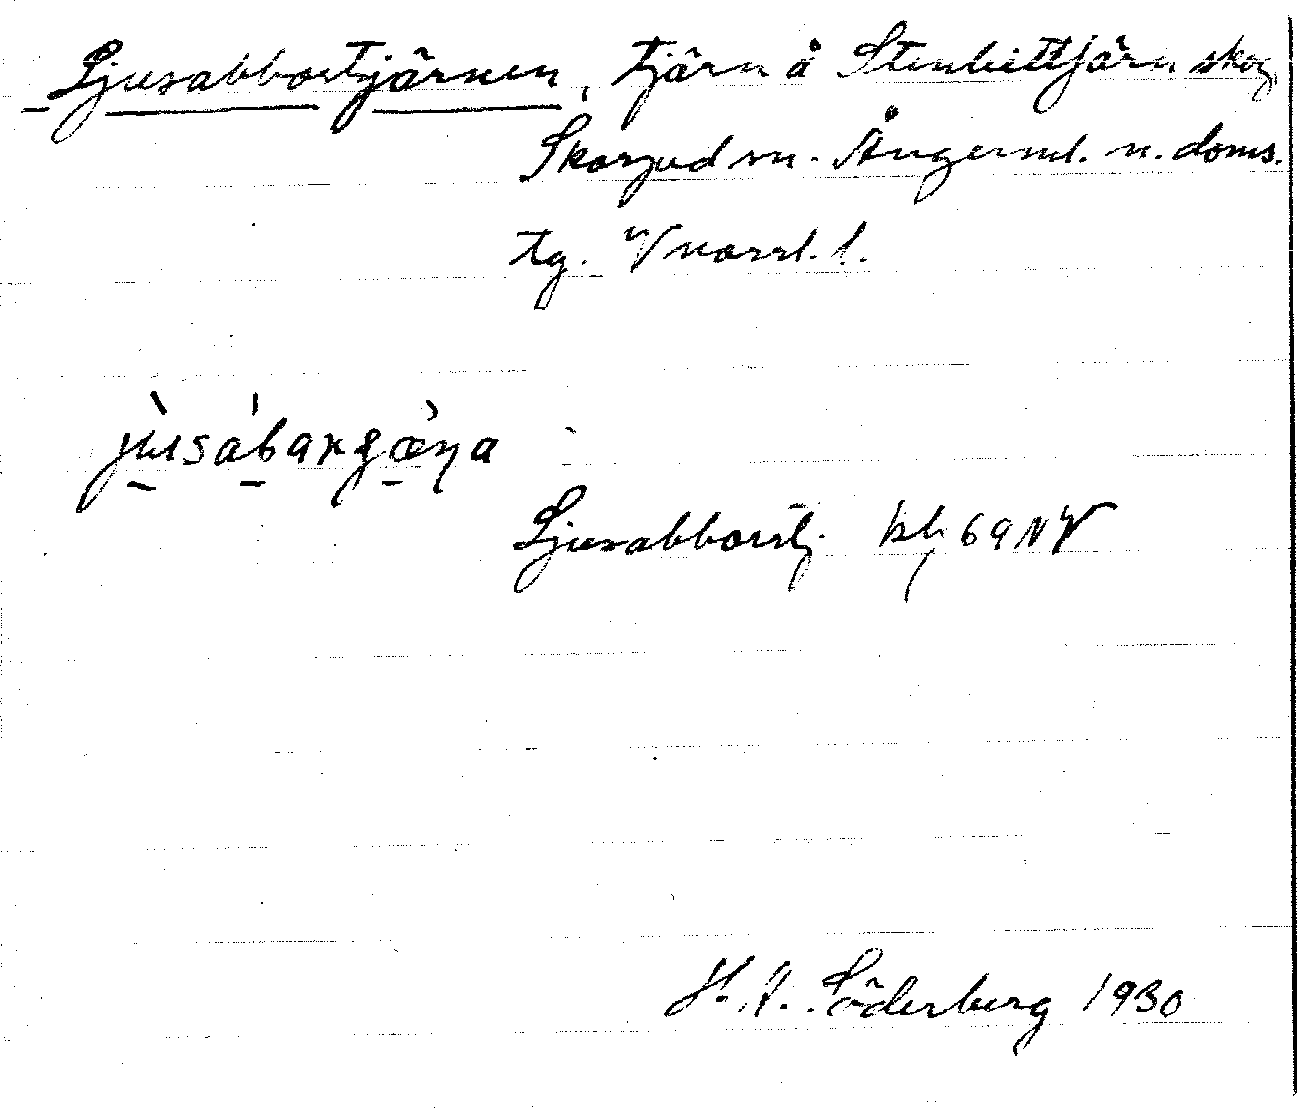 Ljusabbortjärnen, tjärn å Stenbittjärn skog
Skorped sn. Ångerml. n. doms.
tg. Vnorrl. l.
Ljusabborrtj. kbl 69 NV
H. A. Söderberg 1930